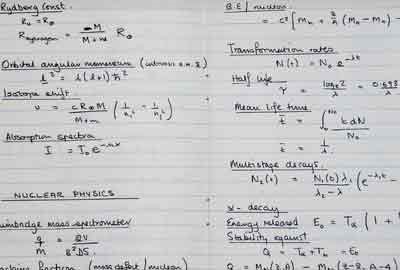 Rydberg Const.
R₀ = R∞
R hydrogen = M / M+m R∞
Orbital angular momentum (
l² = l(l+1)ħ²
Isotope shift.
υ = cR∞M / M+m (1/n₁² - 1/n₂²)
Absorption spectra
I = I₀e
NUCLEAR PHYSICS
mass spectrometer
q/m = 2V / B²DS
fraction (mass defect / nucleon)
B.E / nucleon
= c² [Mn + Z/A (MH - Mn) -
Transformation rates.
N(t) = N₀ e^-λt
Half life
τ = loge2 / λ = 0.693
Mean life time
t̄ = ∫ t dN / N₀
t̄ = 1/λ
Multistage decays.
N₂(t) = N₁(0) λ₁ / λ₂ - λ₁ (e^-λ₁t -
α - decay
Energy released E₀ = Tα (1 +
Stability against
Q = Tα + Tb = E₀
Q = (Z,A) - (Z-2, A-4)